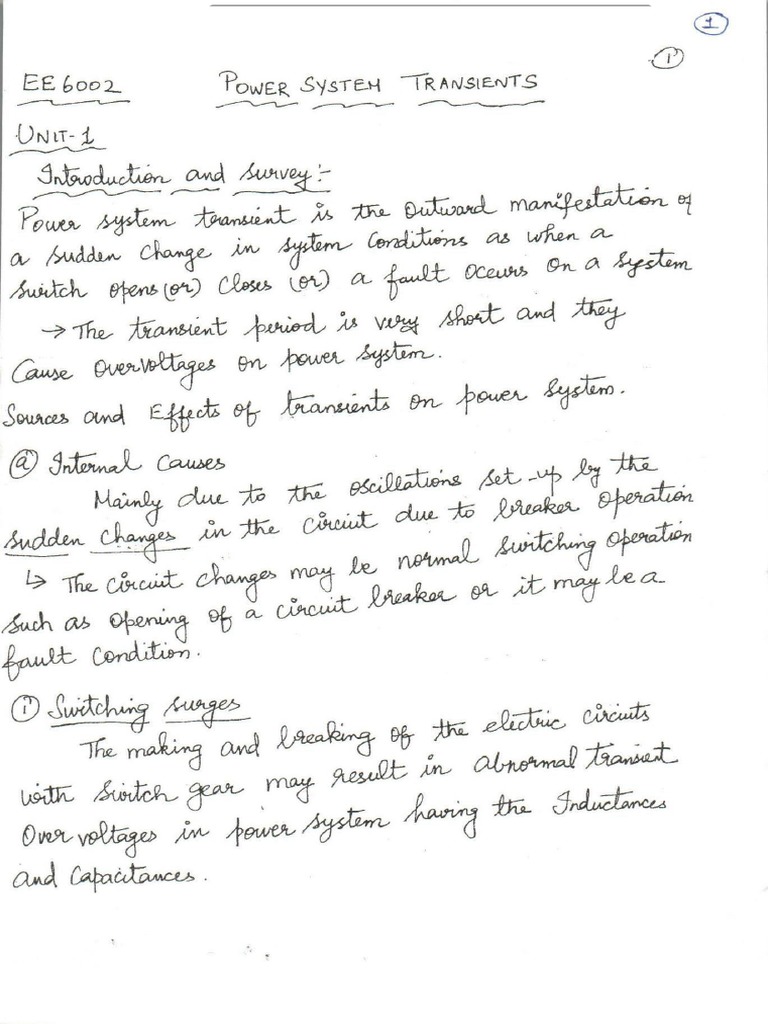 1
1
EE6002 POWER SYSTEM TRANSIENTS
UNIT-1
Introduction and survey :-
Power system transient is the outward manifestation of
a sudden change in system conditions as when a
switch opens (or) closes (or) a fault occurs on a system
→ The transient period is very short and they
Cause overvoltages on power system.
Sources and Effects of transients on power system.
a Internal causes
Mainly due to the oscillations set-up by the
sudden changes in the circuit due to breaker operation
↳ The circuit changes may be normal switching operation
such as opening of a circuit breaker or it may be a
fault condition.
i Switching surges
The making and breaking of the electric circuits
with switch gear may result in abnormal transient
Over voltages in power system having the Inductances
and Capacitances.